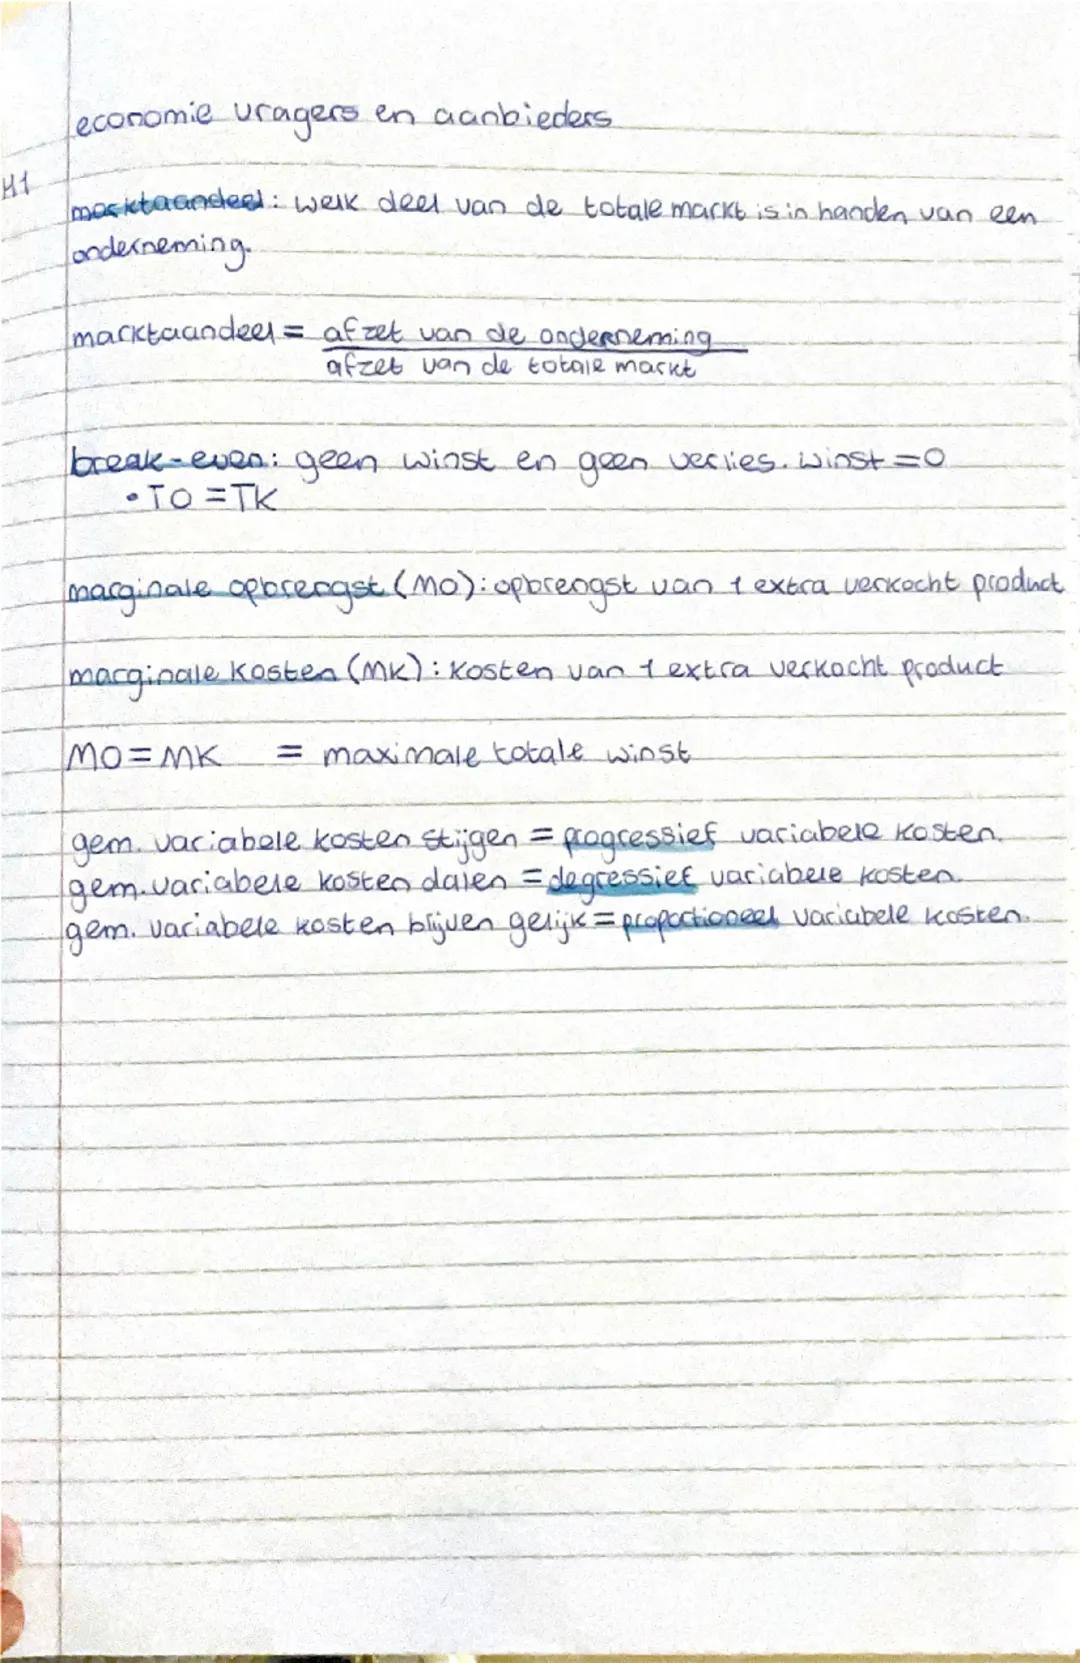 economie vragers en aanbieders
H1
marktaandeel: welk deel van de totale markt is in handen van een
onderneming.
marktaandeel = afzet van de onderneming
afzet van de totale markt
break-even: geen winst en geen verlies. winst = 0
• TO = TK
marginale opbrengst (MO): opbrengst van 1 extra verkocht product
marginale kosten (MK): kosten van 1 extra verkocht product
MO = MK = maximale totale winst
gem. variabele kosten stijgen = progressief variabele kosten.
gem. variabele kosten dalen = degressief variabele kosten.
gem. variabele kosten blijven gelijk = proportioneel variabele kosten.